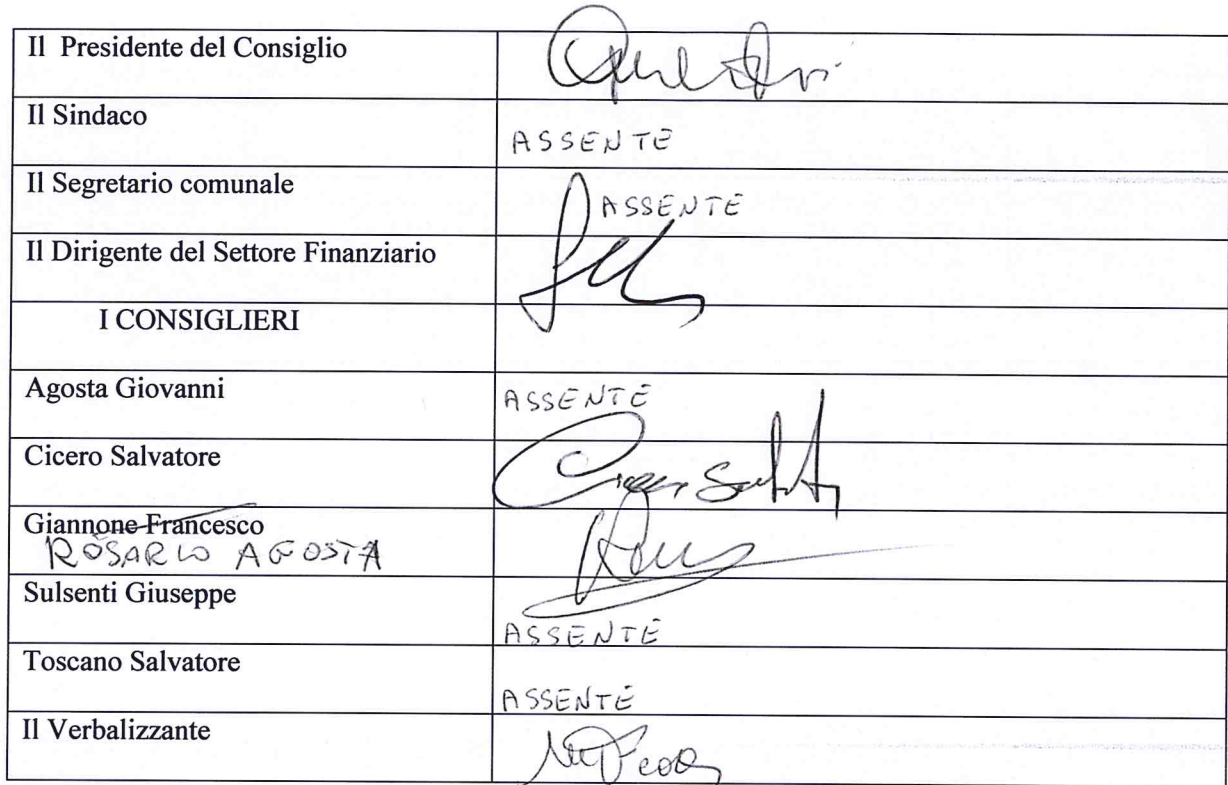 Il Presidente del Consiglio
Il Sindaco
ASSENTE
Il Segretario comunale
ASSENTE
Il Dirigente del Settore Finanziario
I CONSIGLIERI
Agosta Giovanni
ASSENTE
Cicero Salvatore
Giannone Francesco
ROSARIO AGOSTA
Sulsenti Giuseppe
ASSENTE
Toscano Salvatore
ASSENTE
Il Verbalizzante